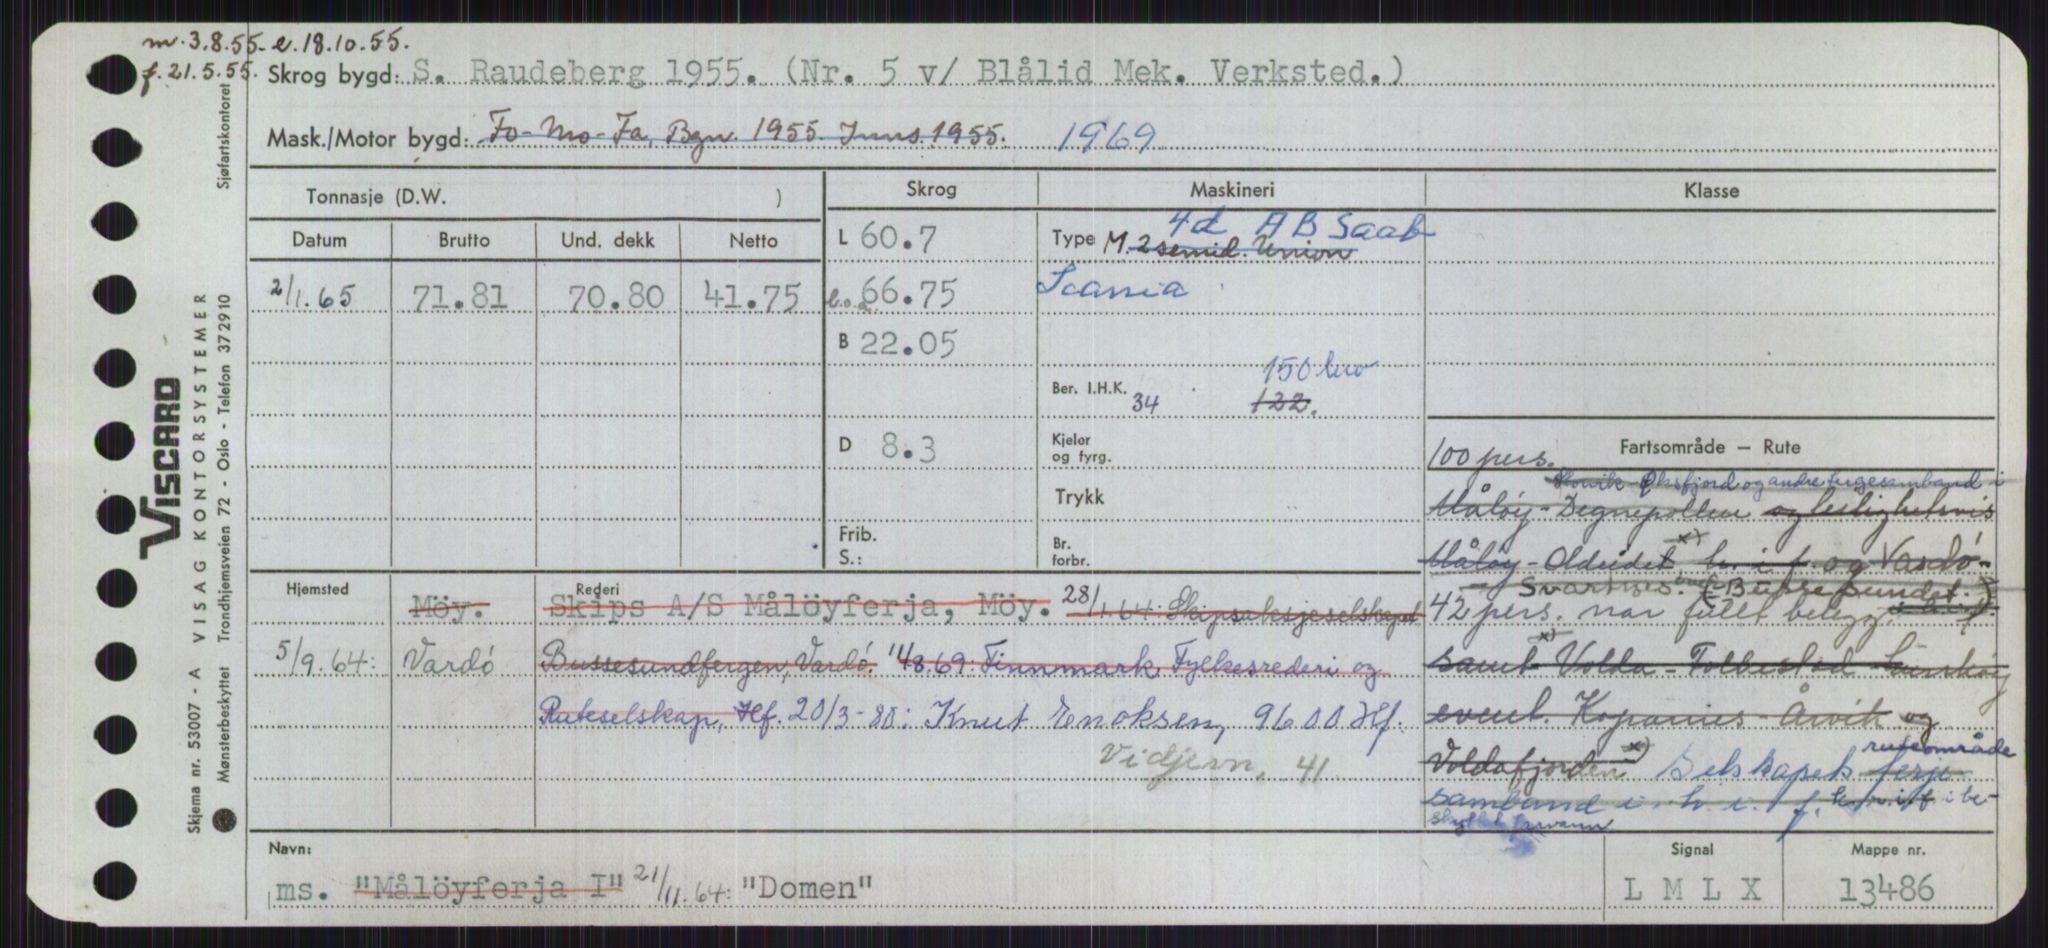 m. 3.8.55. e. 18.10.55.
f. 21.5.55. Skrog bygd: S. Raudeberg 1955. (Nr. 5 v/ Blålid Mek. Verksted.)
Mask./Motor bygd: Fo-Mo-Fa, Bgn. 1955. Inns. 1955. 1969
Tonnasje (D.W. )
Datum Brutto Und. dekk Netto
2/1.65 71.81 70.80 41.75
Skrog
L 60.7
l.o.a. 66.75
B 22.05
D 8.3
Frib.
S.:
Maskineri
4d AB Saab
Type M. 2 semid. Union
Scania
150 bre
Ber. I.H.K. 34 122.
Kjeler
og fyrg.
Trykk
Br.
forbr.
Klasse
Fartsområde — Rute
100 pers.
Øksfjord og andre fergesamband i
Måløy - Degnepollen og leilighetsvis
Måløy - Oldeidet x) h.i.f. og Vardø -
- Svartnes. (Bussesundet.)
42 pers. når fullt belegg
samt x) Volda - Folkestad
event. Koparnes - Årvik og
Voldafjorden x) Selskapets ferje ruteområde
samband i h.i.f. i be-
skyttet farvann
Hjemsted Rederi
Möy. Skips A/S Målöyferja, Möy. 28/1.64: Skipsaksjeselskapet
5/9.64: Vardö Bussesundfergen, Vardö. 14/8.69: Finnmark Fylkesrederi og
Ruteselskap, Hf. 20/3-80: Knut Enoksen, 9600 Hf.
Vidjevn. 41
Navn:
ms. "Målöyferja I" 21/11.64: "Domen"
Signal
L M L X
Mappe nr.
13486
VISCARD
VISAG KONTORSYSTEMER
Skjema nr. 53007 - A
Mønsterbeskyttet Trondhjemsveien 72 - Oslo - Telefon 372910
Sjøfartskontoret